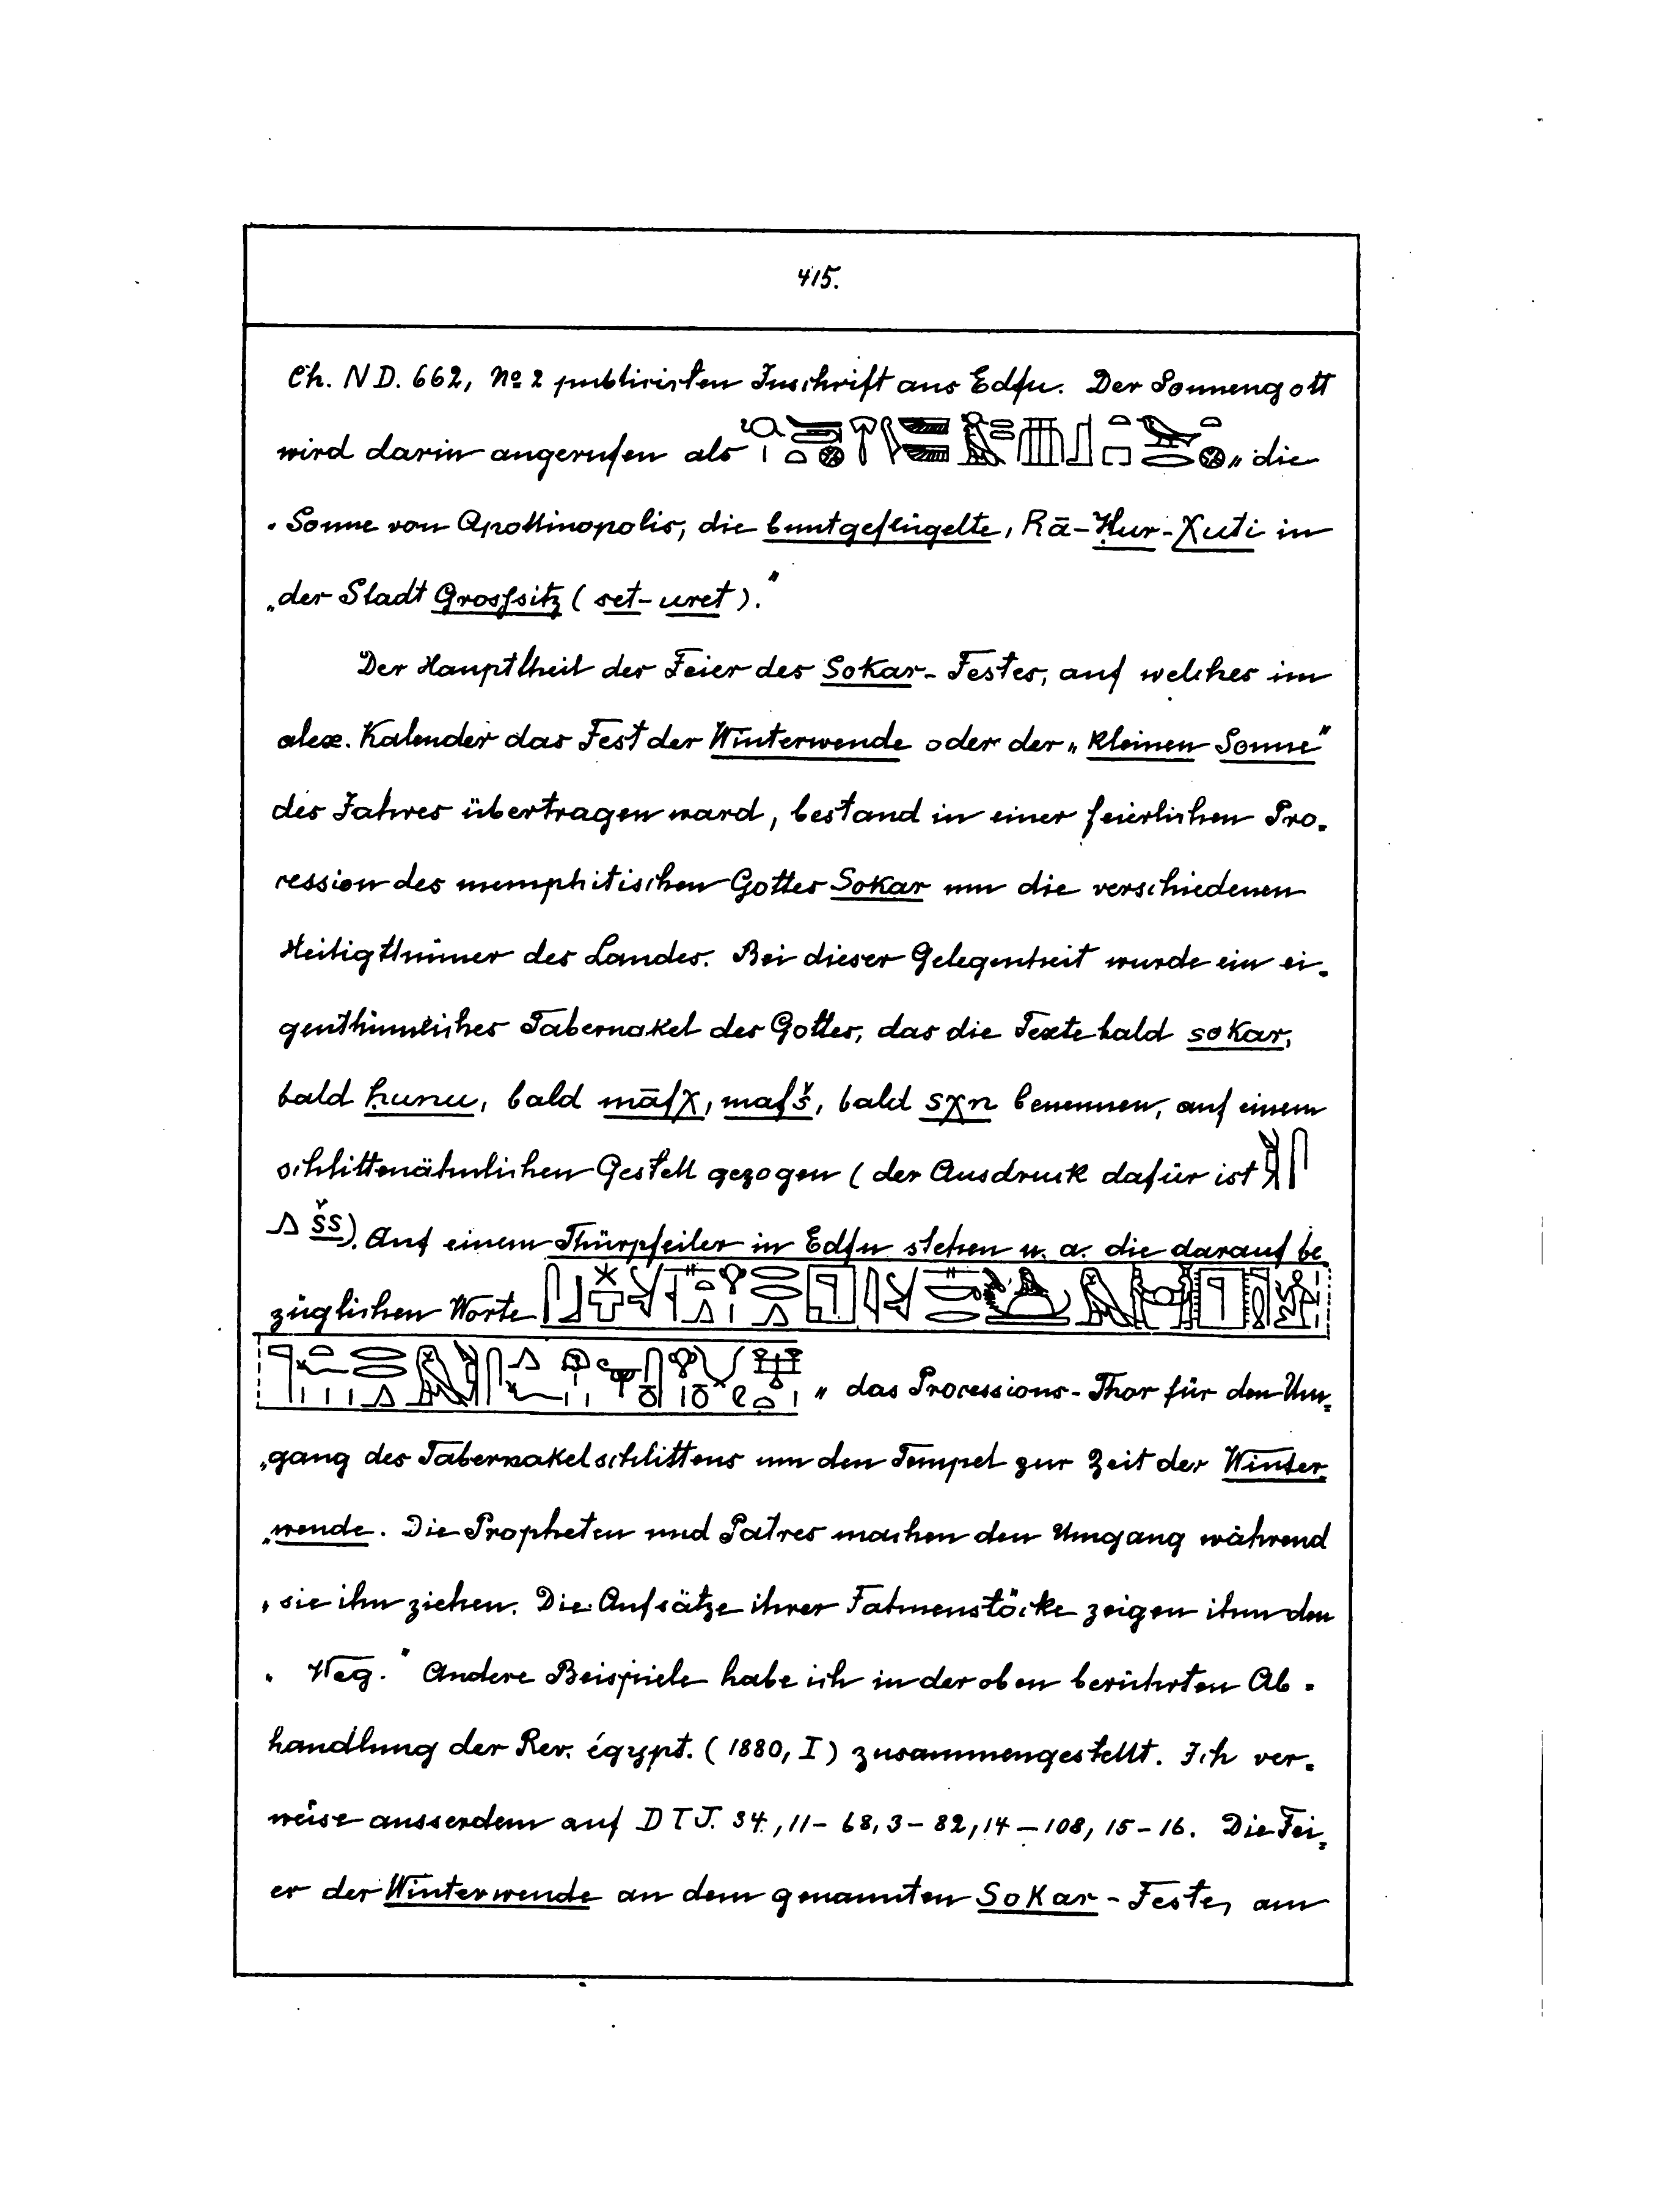 415.
Ch. N D. 662, No 2 publicirten Inschrift aus Edfu. Der Sonnengott
wird darin angerufen als „die
„Sonne von Apollinopolis, die buntgeflügelte, Rā-Ḥur-Χuti in
„der Stadt Grosssitz (set-uret)."
Der Haupttheil der Feier des Sokar-Festes, auf welches im
alex. Kalender das Fest der Winterwende oder der „kleinen Sonne"
des Jahres übertragen ward, bestand in einer feierlichen Pro-
cession des memphitischen Gottes Sokar um die verschiedenen
Heiligthümer des Landes. Bei dieser Gelegenheit wurde ein ei-
genthümliches Tabernakel des Gottes, das die Texte bald sokar,
bald ḥunu, bald māfχ, mafš, bald sχn benennen, auf einem
schlittenähnlichen Gestell gezogen (der Ausdruck dafür ist
šs). Auf einem Thürpfeiler in Edfu stehen u. a. die darauf be-
züglichen Worte
„das Processions-Thor für den Um-
„gang des Tabernakelschlittens um den Tempel zur Zeit der Winter-
„wende. Die Propheten und Patres machen den Umgang während
„sie ihn ziehen. Die Aufsätze ihrer Fahnenstöcke zeigen ihm den
„Weg." Andere Beispiele habe ich in der oben berührten Ab-
handlung der Rev. égypt. (1880, I) zusammengestellt. Ich ver-
weise ausserdem auf D T J. 34, 11 - 68, 3 - 82, 14 - 108, 15 - 16. Die Fei-
er der Winterwende an dem genannten Sokar-Feste, am